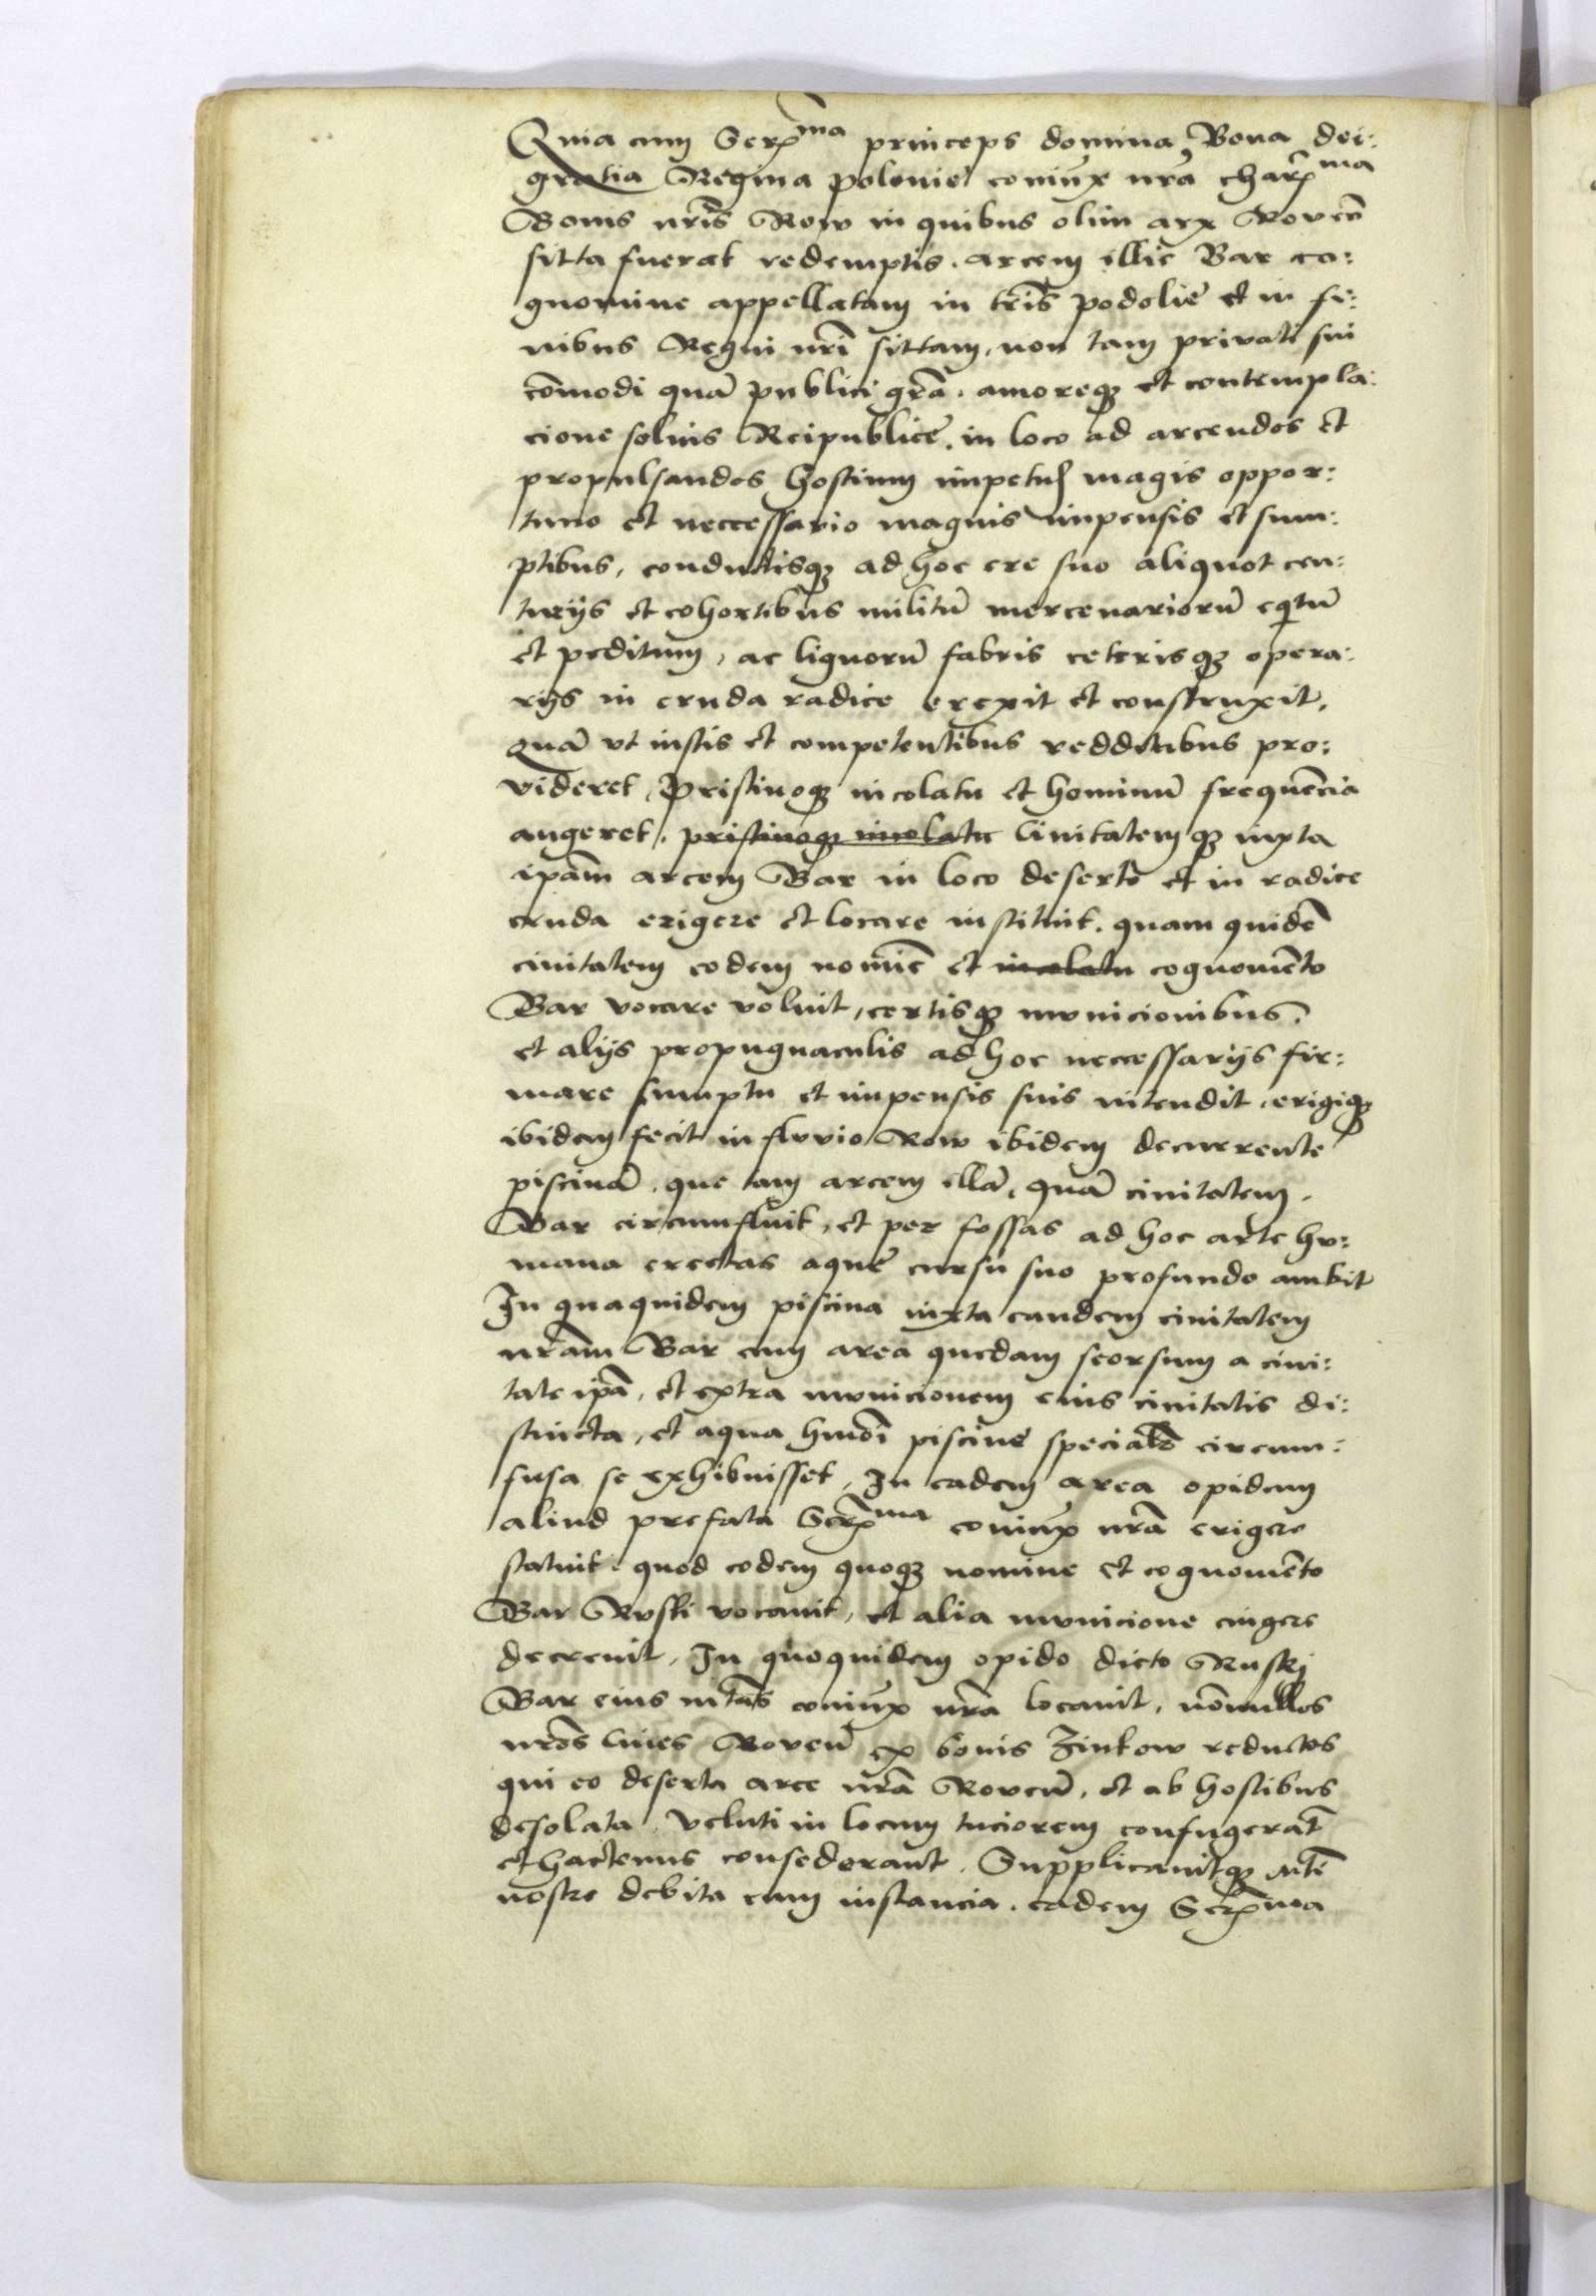 Quia cum Ser[ma] princeps domina Bona dei:
gratia Regina polonie coniunx nr̃a char[ma]
Bonis nr̃is Row in quibus olim arx Roveñ
sitta fuerat redemptis. arcem illic Bar co:
gnomine appellatam in tr̃is podolie et in fi:
nibus Regni nr̃i sittam, non tam privati sui
cõmodi quã publici gr̃a. amoreqʒ et contempla:
cione solius Reipublice. in loco ad arcendos et
propulsandos hostium impetus magis oppor:
tuno et neccessario magnis impensis et sum:
ptibus, conductisqʒ ad hoc ere suo aliquot cen:
turijs et cohortibus militũ mercenariorũ eqitũ
et peditum, ac lignorũ fabris ceterisqʒ opera:
rijs in cruda radice erexit et construxit.
quã vt iustis et competentibus redditibus pro:
videret, Pristinoqʒ incolatu et hominũ frequẽcia
augeret. pristinoqʒ incolatu Civitatemqʒ iuxta
ipãm arcem Bar in loco deserto et in radice
cruda erigere et locare instituit. quam quidẽ
civitatem eodem nomiẽ et incolatu cognomẽto
Bar vocare voluit, certisqʒ municionibus.
et alijs propugnaculis ad hoc neccessarijs fir:
mare sumptu et impensis suis intendit. erigiqʒ
ibidem fecit in fluvio Row ibidem decurrente
piscinã. que tam arcem illã, quã civitatem.
Bar circumfluit, et per fossas ad hoc arte hu:
mana erectas aque cursu suo profundo ambit
In quaquidem piscina iuxta eandem civitatem
nr̃am Bar cum area quedam seorsum a civi:
tate ip̃a, et extra municionem eius civitatis di:
stincta, et aqua hm̃oi piscine specialẽ circum:
fusa se exhibuisset, In eadem area opidum
aliud prefata Ser[ma] coniunx nr̃a erigere
statuit. quod eodem quoqʒ nomine et cognomẽto
Bar Ruski vocavit, et alia municione cingere
decrevit. In quoquidem opido dicto Ruskj
Bar eius mtãs coniunx nr̃a locavit, nõnullos
nr̃os Cives Roveñ ex bonis Zinkow reductos
qui eo deserta arce nr̃a Roveñ, et ab hostibus
desolata. veluti in locum tuciorem confugerãt
et hactenus consederant. Supplicavitqʒ mti
nostre debita cum instancia. eadem Ser[ma]